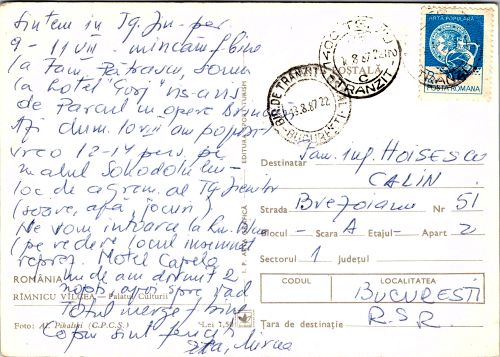 Sîntem în Tg. Jiu - per
9-11 VII. mîncăm bine
la Fam. Pătrașcu, dormim
la hotel "Gorj" vis-a-vis
de Parcul cu opere Brâncuși
Azi dum. 10 VII am poposit
vreo 12-14 pers. pe
malul
loc de agrem. al Tg. Jiului
(soare, apă, jocuri)
Ne vom întoarce la Rm. Vîlcea
(pe vedere locul însemnat
reprez. Motel Capela
unde am dormit 2
nopți, apoi spre
Totul merge bine
Copiii sînt fericiți
Mircea
ROMÂNIA
RÎMNICU VÎLCEA - Palatul Culturii
Foto: Al. Pikalski (C.P.C.S.)
Lei 1,50
EDITURA SPORT-TURISM
ARTĂ POPULARĂ
POSTA ROMANA
POȘTALĂ
TRANZIT
BIR. DE TRANZIT
BUCUREȘTI
13.8.87.22
Destinatar Fam. ing. HOISESCU
CALIN
Strada Brezoianu Nr. 51
Blocul - Scara A Etajul - Apart. 2
Sectorul 1 județul
CODUL LOCALITATEA
BUCUREȘTI
Țara de destinație R.S.R.